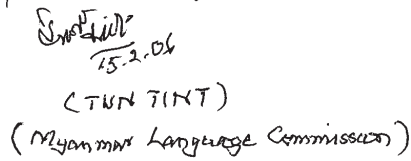 15.2.06
(TUN TINT)
(Myanmar Language Commission)